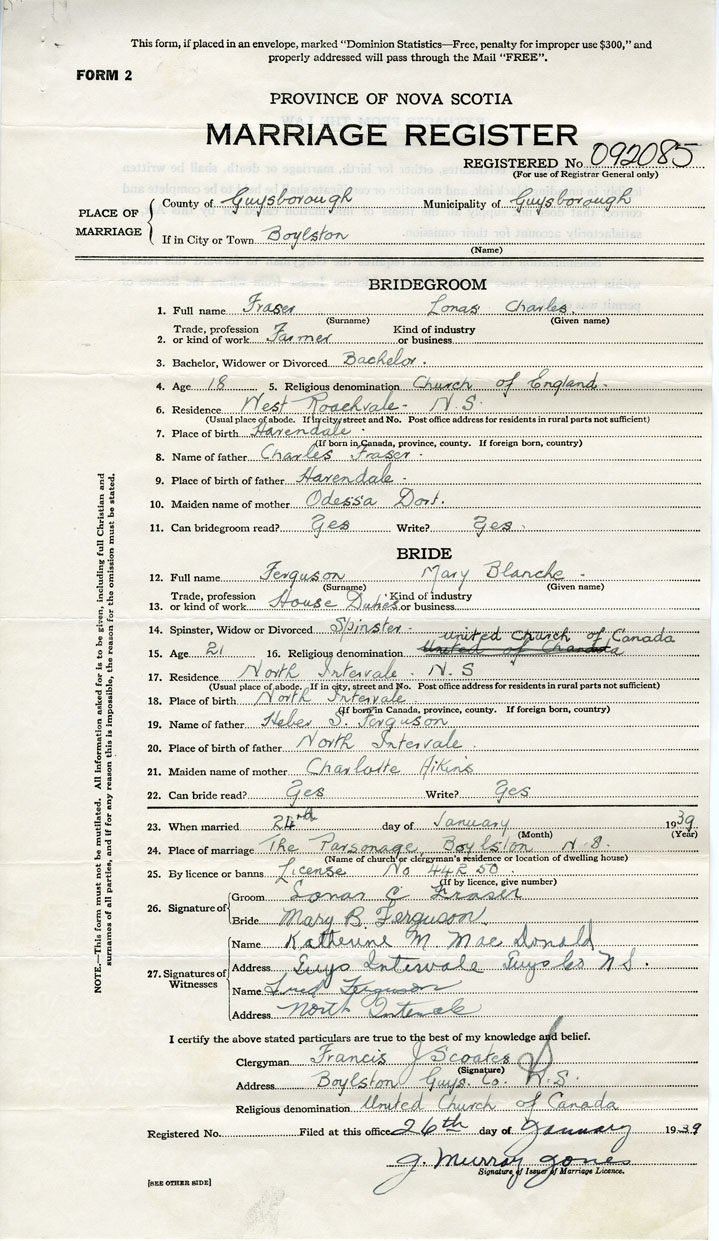 This form, if placed in an envelope, marked "Dominion Statistics—Free, penalty for improper use $300," and
properly addressed will pass through the Mail "FREE".
FORM 2
PROVINCE OF NOVA SCOTIA
MARRIAGE REGISTER
REGISTERED No 092085
(For use of Registrar General only)
PLACE OF MARRIAGE
County of Guysborough Municipality of Guysborough
If in City or Town Boylston
(Name)
BRIDEGROOM
1. Full name Fraser Lonas Charles.
(Surname) (Given name)
2. Trade, profession or kind of work Farmer Kind of industry or business
3. Bachelor, Widower or Divorced Bachelor.
4. Age 18 5. Religious denomination Church of England.
6. Residence West Roachvale - N.S.
(Usual place of abode. If in city, street and No. Post office address for residents in rural parts not sufficient)
7. Place of birth Havendale.
(If born in Canada, province, county. If foreign born, country)
8. Name of father Charles Fraser.
9. Place of birth of father Havendale.
10. Maiden name of mother Odessa Dort.
11. Can bridegroom read? Yes Write? Yes.
BRIDE
12. Full name Ferguson Mary Blanche -
(Surname) (Given name)
13. Trade, profession or kind of work House Duties Kind of industry or business
14. Spinster, Widow or Divorced Spinster -
united Church of Canada
15. Age 21 16. Religious denomination United of
17. Residence North Intervale. N.S
(Usual place of abode. If in city, street and No. Post office address for residents in rural parts not sufficient)
18. Place of birth North Intervale
(If born in Canada, province, county. If foreign born, country)
19. Name of father Heber S. Ferguson
20. Place of birth of father North Intervale.
21. Maiden name of mother Charlotte Aikins
22. Can bride read? Yes Write? Yes
23. When married 24 day of January 1939
(Month) (Year)
24. Place of marriage The Parsonage, Boylston N.S.
(Name of church or clergyman's residence or location of dwelling house)
25. By licence or banns License No 44250.
(If by licence, give number)
26. Signature of
Groom Lonas C Fraser
Bride Mary B. Ferguson
27. Signatures of Witnesses
Name Katherine M. Mac Donald
Address Guys Intervale Guys Co N.S.
Name Fred Ferguson
Address North Intervale
I certify the above stated particulars are true to the best of my knowledge and belief.
Clergyman Francis J Scoates
(Signature)
Address Boylston Guys. Co. N.S.
Religious denomination United Church of Canada
Registered No. Filed at this office 26th day of January 1939
J. Murray Jones
Signature of Issuer of Marriage Licence.
[SEE OTHER SIDE]
NOTE.—This form must not be mutilated. All information asked for is to be given, including full Christian and
surnames of all parties, and if for any reason this is impossible, the reason for the omission must be stated.